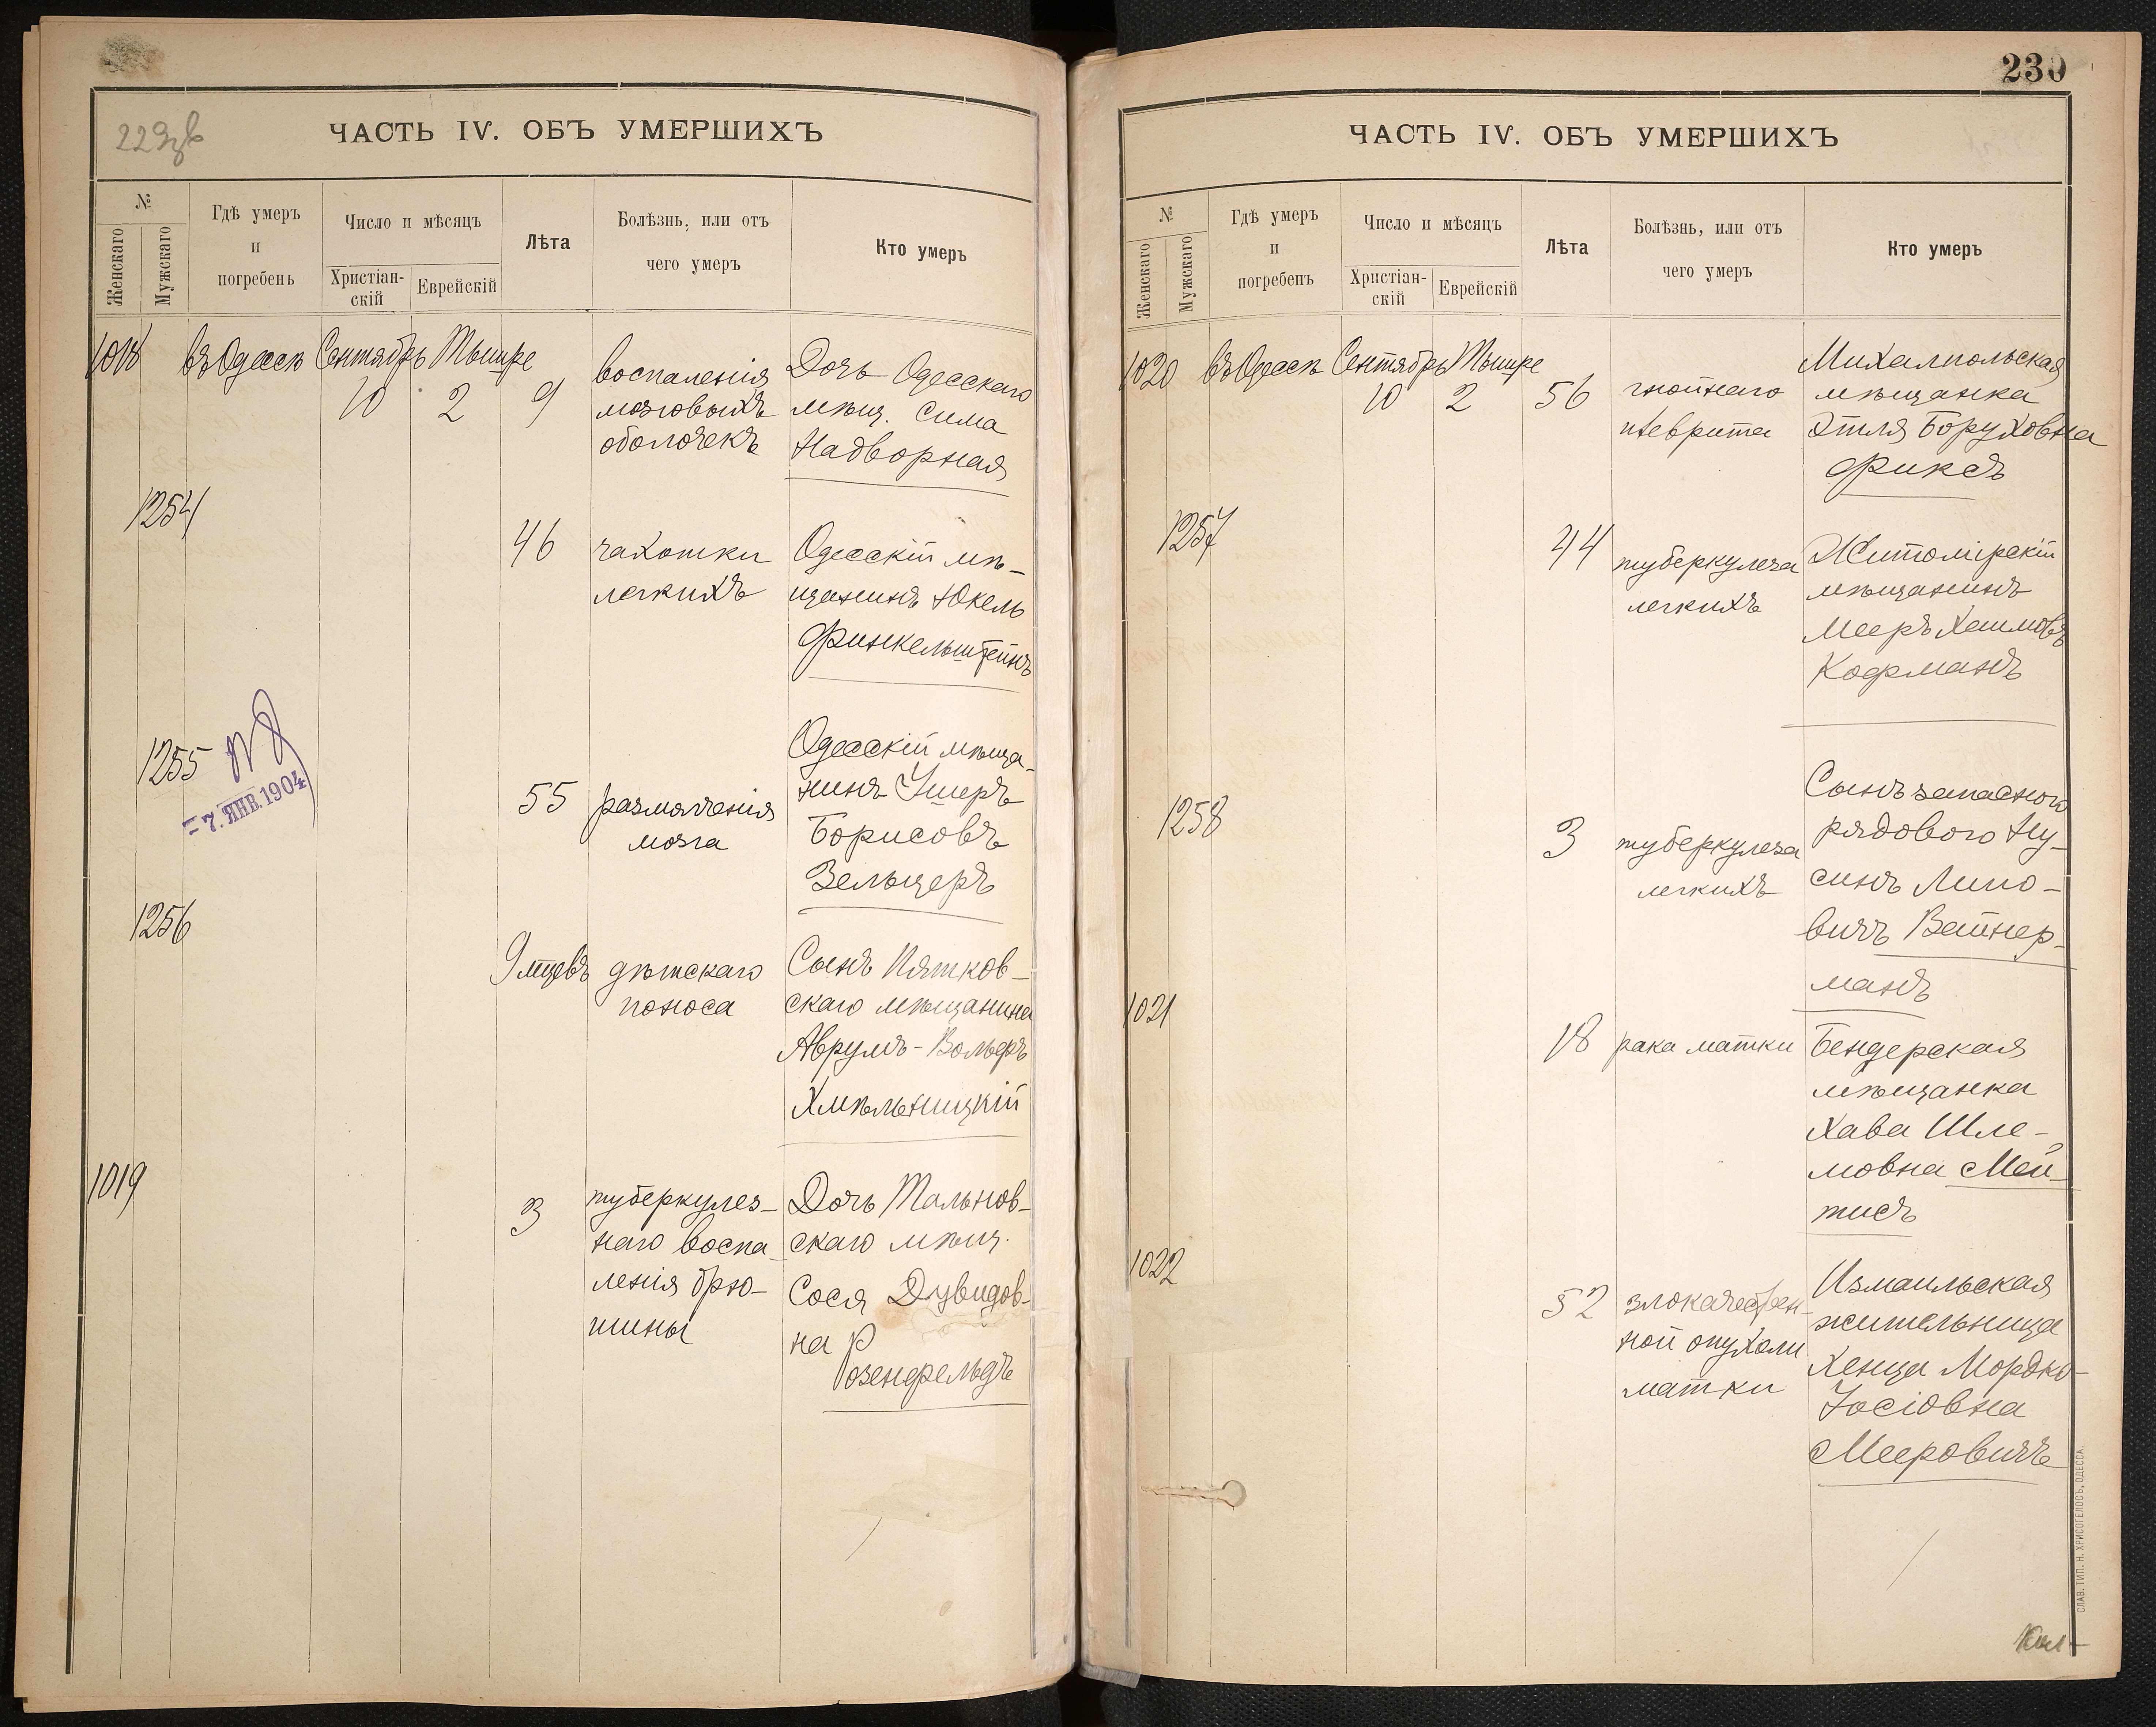 229 об
ЧАСТЬ IV. ОБЪ УМЕРШИХЪ
№
Женскаго
Мужскаго
Гдѣ умеръ
и
погребенъ
Число и мѣсяцъ
Христіан-
скій
Еврейскій
Лѣта
Болѣзнь, или отъ
чего умеръ
Кто умеръ
1018 въ Одессѣ Сентябрь Тышре
10 2 9
воспаленія
мозговыхъ
оболочекъ
Дочь Одесскаго
мѣщ. Сима
Надворная
1254
46
чахотки
легкихъ
Одесскій мѣ-
щанинъ Юкель
Финкельштейнъ
1255
7. ЯНВ. 1904
55
размягченія
мозга
Одесскій мѣща-
нинъ Ушеръ
Борисовъ
Зельцеръ
1256
9 мцевъ
дѣтскаго
поноса
Сынъ Пятков-
скаго мѣщанина
Аврумъ-Вольфъ
Хмѣльницкій
1019
3
туберкулез-
наго воспа-
ленія брю-
шины
Дочь Тальнов-
скаго мѣщ.
Сося Дувидов-
на Р
озенфельдъ
230
ЧАСТЬ IV. ОБЪ УМЕРШИХЪ
№
Женскаго
Мужскаго
Гдѣ умеръ
и
погребенъ
Число и мѣсяцъ
Христіан-
скій
Еврейскій
Лѣта
Болѣзнь, или отъ
чего умеръ
Кто умеръ
1020 въ Одессѣ Сентябрь Тышре
10 2 56
гнойнаго
плеврита
Михалпольская
мѣщанка
Этля Боруховна
Фиксъ
1257
44
туберкулеза
легкихъ
Житомірскій
мѣщанинъ
Мееръ Хаимовъ
Кофманъ
1258
3
туберкулеза
легкихъ
Сынъ запаснаго
рядового Ну-
синъ Липо-
вичъ Вайнер-
манъ
1021
18
рака матки
Бендерская
мѣщанка
Хава Шле-
мовна Мей-
тисъ
1022
52
злокачествен-
ной опухоли
матки
Измаильская
жительница
Хенца Мордко-
Іосіовна
Мееровичъ
СЛАВ. ТИП. Н. ХРИСОГЕЛОСЪ, ОДЕССА.